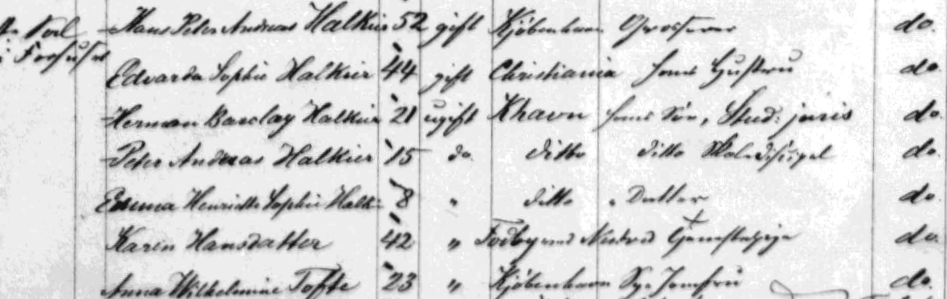 Hans Peter Andreas Halkier 52 gift Kjøbenhavn Grosserer do.
i Forhuset
Edvarda Sophie Halkier 44 gift Christiania hans Hustru do.
Herman Barclay Halkier 21 ugift Khavn hans Søn, Stud: juris do.
Peter Andreas Halkier 15 do. ditto ditto Skoledisipel do.
Emma Henriette Sophie Halk: 8 " ditto " Datter do.
Karin Hansdatter 42 " Fodby ved Nestved Tjenestepige do.
Anna Wilhelmine Tofte 23 " Kjøbenhavn Sye Jomfru do.